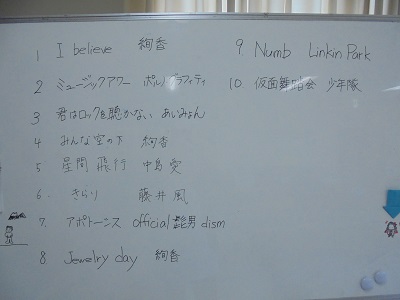 1 I believe 絢香
2 ミュージックアワー ポルノグラフィティ
3 君はロックを聴かない あいみょん
4 みんな空の下 絢香
5 星間飛行 中島愛
6. きらり 藤井風
7. アポトーシス Official髭男dism
8. Jewelry day 絢香
9. Numb Linkin Park
10. 仮面舞踏会 少年隊